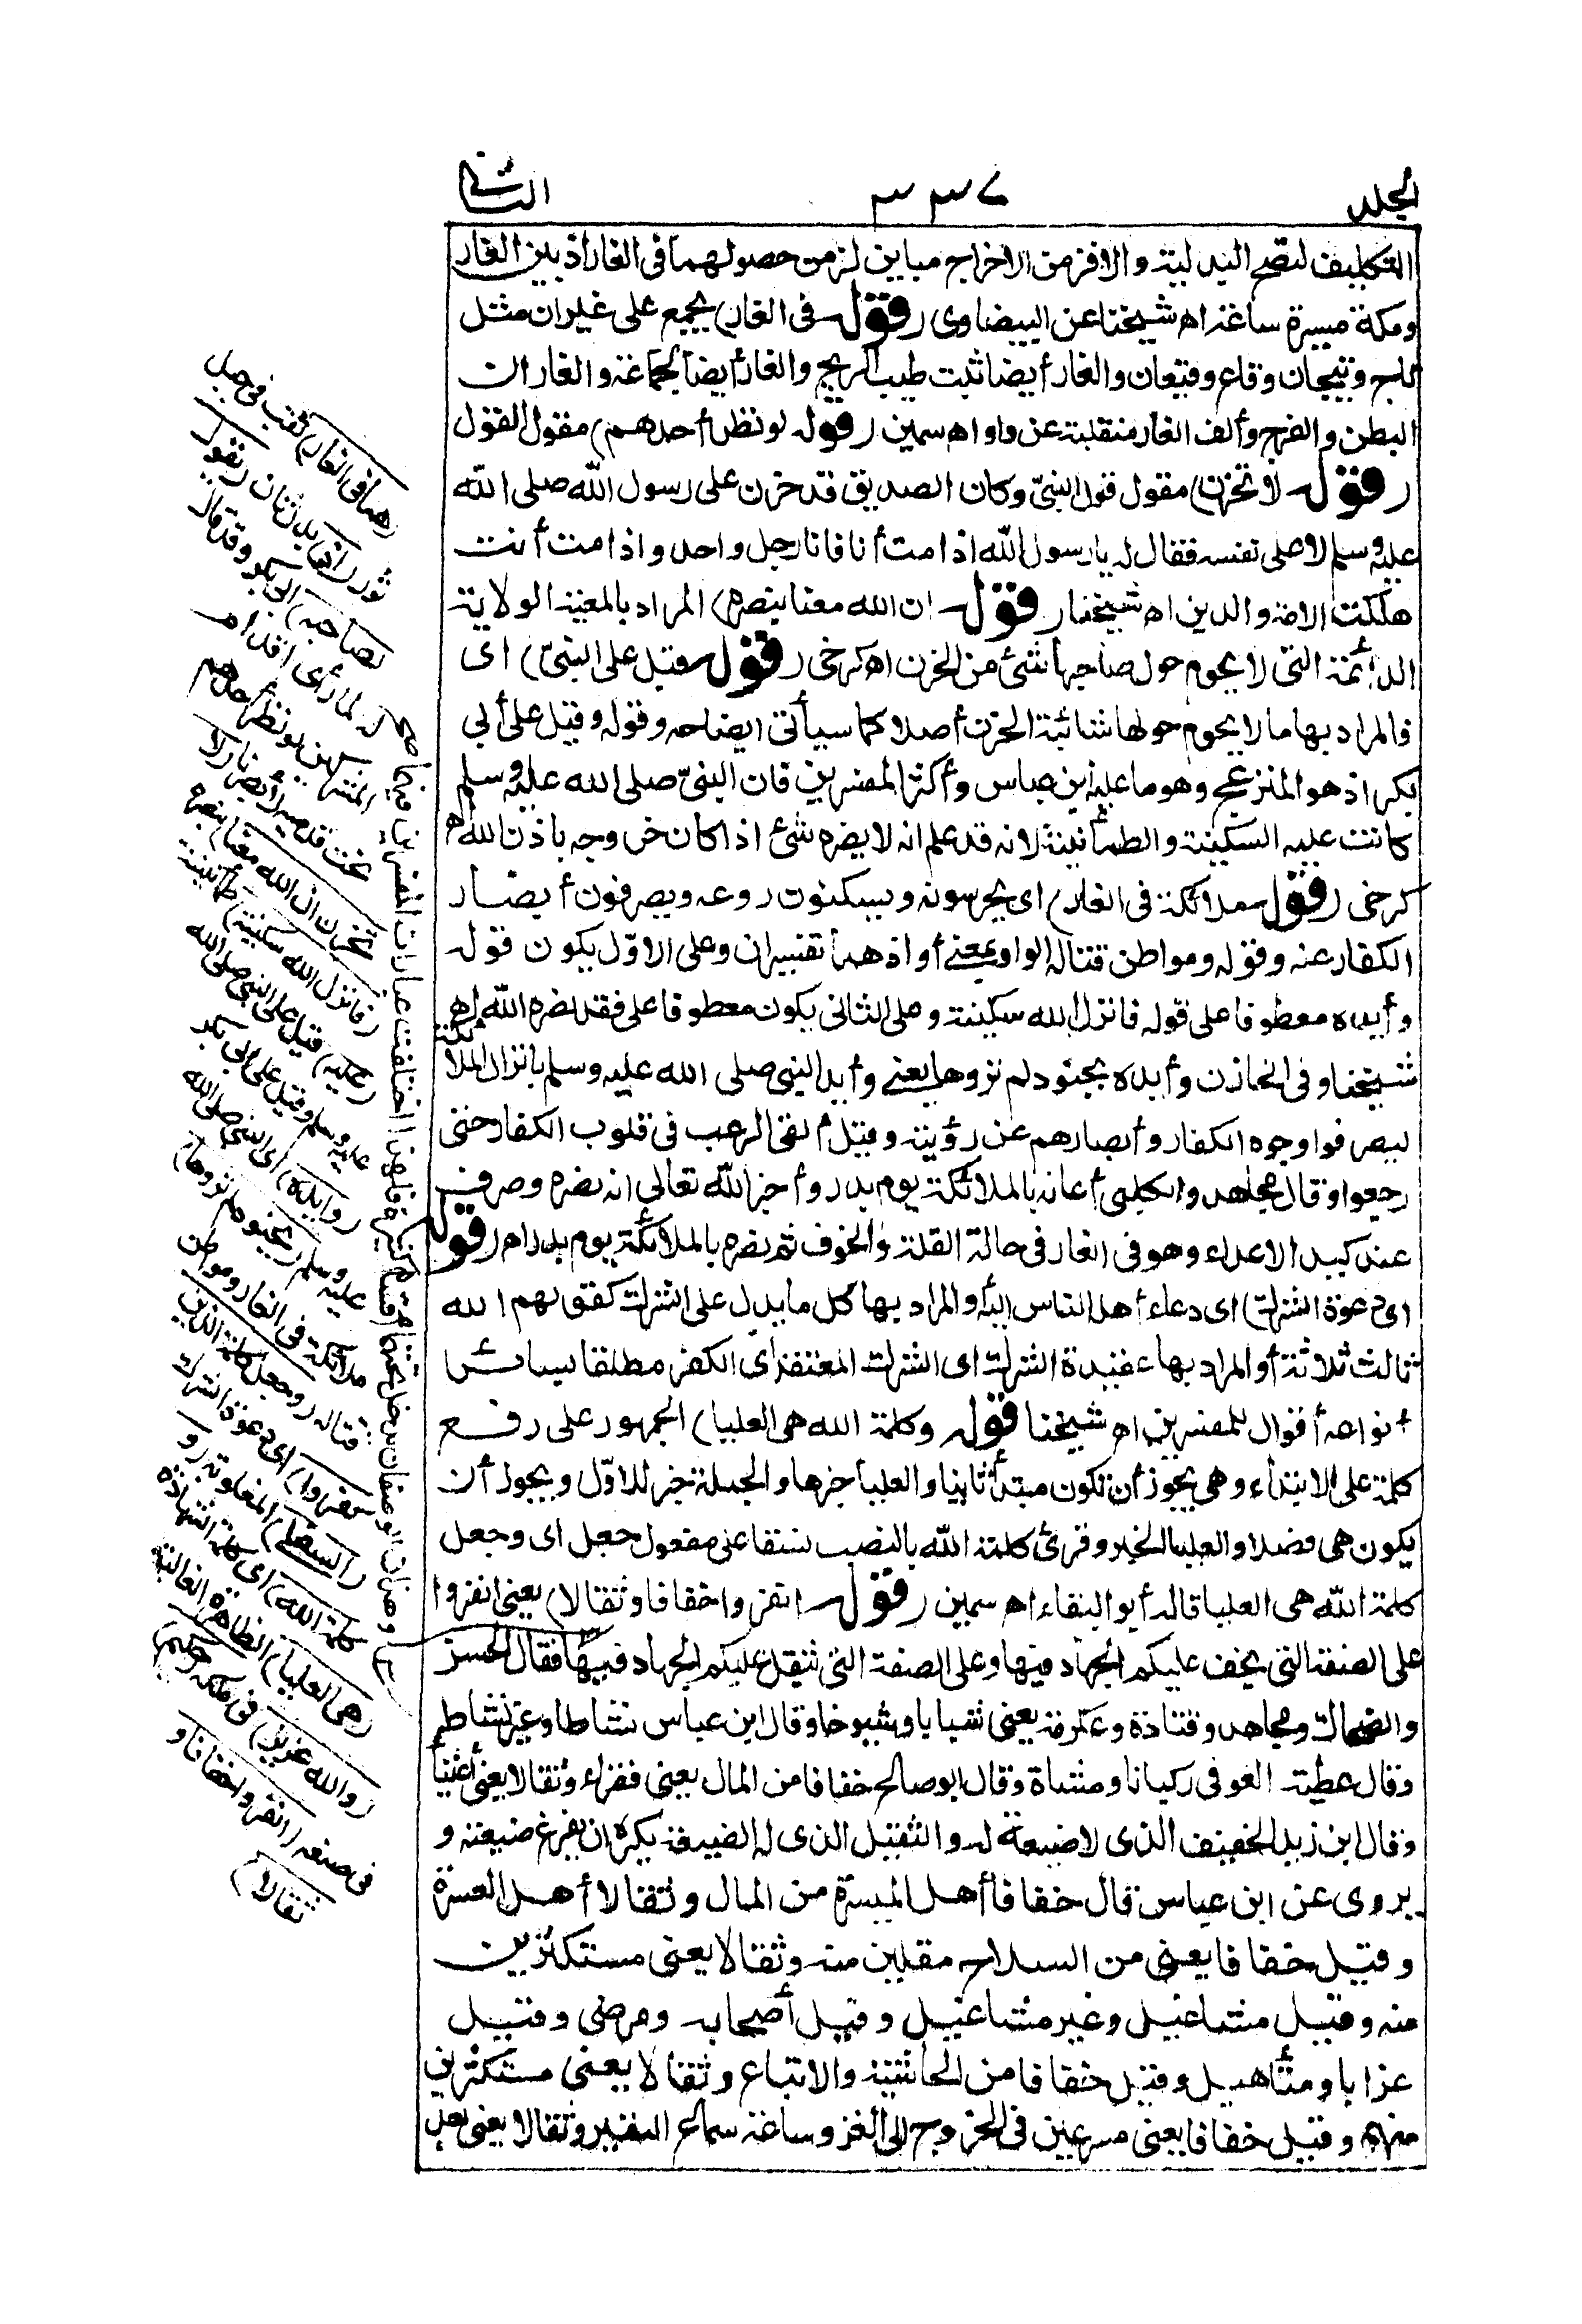 الجلد ٣٣٧ الثاني
التكليف لتصح البدلية والا فزمن الاخراج مباين لزمن حصولهما فى الغار اذ بين الغار
ومكة مسيرة ساعة اه شيخنا عن البيضاوى (قوله فى الغار) يجمع على غيران مثل
تاج وتيجان وقاع وقيعان والغار أيضا نبت طيب الريح والغار أيضا الجماعة والغاران
البطن والفرج وألف الغار منقلبة عن واو اه سمين (قوله لو نظر أحدهم) مقول القول
(قوله لا تحزن) مقول قول النبىّ وكان الصديق قد حزن على رسول الله صلى الله
عليه وسلم لا على نفسه فقال له يا رسول الله اذا مت أنا فانا رجل واحد واذا مت أنت
هلكت الامة والدين اه شيخنا (قوله ان الله معنا بنصره) المراد بالمعية الولاية
الدائمة التى لا يحوم حول صاحبها شئ من الحزن اه كرخى (قوله قيل على النبىّ) اى
فالمراد بها ما لا يحوم حولها شائبة الحزن أصلا كما سيأتى ايضاحه وقوله وقيل على أبى
بكر اذ هو المنزعج وهو ما عليه ابن عباس وأكثر المفسرين فان النبىّ صلى الله عليه وسلم
كانت عليه السكينة والطمأنينة لانه قد علم انه لا يضره شئ اذا كان خروجه باذن الله اه
كرخى (قوله ملائكة فى الغار) اى يحرسونه ويسكنون روعه ويصرفون أبصار
الكفار عنه وقوله ومواطن قتاله الواو بمعنى أو اذ هما تفسيران وعلى الاوّل يكون قوله
وأيده معطوفا على قوله فانزل الله سكينته وعلى الثانى يكون معطوفا على فقد نصره الله اه
شيخنا وفى الخازن وأيده بجنود لم تروها يعنى وأيد النبى صلى الله عليه وسلم بانزال الملائكة
ليصرفوا وجوه الكفار وأبصارهم عن رؤيته وقيل ألقى الرعب فى قلوب الكفار حتى
رجعوا وقال مجاهد والكلبى أعانه بالملائكة يوم بدر وأخبر الله تعالى انه نصره وصرف
عنه كيد الاعداء وهو فى الغار فى حالة القلة والخوف ثم نصره بالملائكة يوم بدر اه (قوله
اى دعوة الشرك) اى دعاء أهل الناس اليه والمراد بها كل ما يدل على الشرك كقولهم الله
ثالث ثلاثة أو المراد بها عقيدة الشرك اى الشرك المعتقد اى الكفر مطلقا بسائر
أنواعه أقوال للمفسرين اه شيخنا (قوله وكلمة الله هى العليا) الجمهور على رفع
كلمة على الابتداء وهى يجوز أن تكون مبتدأ ثانيا والعليا خبرها والجملة خبر للاوّل ويجوز أن
يكون هى فصلا والعليا الخبر وقرئ كلمة الله بالنصب نسقا على مفعول جعل اى وجعل
كلمة الله هى العليا قاله أبو البقاء اه سمين (قوله انفروا خفافا وثقالا) يعنى انفروا
على الصفة التى يخف عليكم الجهاد فيها وعلى الصفة التى يثقل عليكم الجهاد فيها فقال الحسن
والضحاك ومجاهد وقتادة وعكرمة يعنى شبابا وشيوخا وقال ابن عباس نشاطا وغير نشاط
وقال عطية العوفى ركبانا ومشاة وقال ابو صالح خفافا من المال يعنى فقراء وثقالا يعنى أغنياء
وقال ابن زيد الخفيف الذى لا ضيعة له والثقيل الذى له الضيعة يكره ان يفرغ ضيعته و
يروى عن ابن عباس قال خفافا أهل الميسرة من المال وثقالا أهل العسرة
وقيل خفافا يعنى من السلاح مقلين منه وثقالا يعنى مستكثرين
منه وقيل مشاغيل وغير مشاغيل وقيل أصحابه ومرضى وقيل
عزابا ومتأهيل وقيل خفافا من الحاشية والاتباع وثقالا يعنى مستكثرين
منهم وقيل خفافا يعنى مسرعين فى الخروج الى الغزو ساعة سماع النفير وثقالا يعنى بعد
(هما فى الغار) ثقب فى جبل
ثور (اذ) بدل ثان (يقول
لصاحبه) ابى بكر وقد قال
له لما رأى اقدام
المشركين لو نظر أحدهم
تحت قدميه لأبصرنا (لا
تحزن ان الله معنا) بنصره
(فانزل الله سكينته) طمأنينته
(عليه) قيل على النبى صلى الله
عليه وسلم وقيل على ابى بكر
(وايده) اى النبى صلى الله
عليه وسلم (بجنود لم تروها)
ملائكة فى الغار ومواطن
قتاله (وجعل كلمة الذين
كفروا) اى دعوة الشرك
(السفلى) المغلوبة (و
كلمة الله) اى كلمة الشهادة
(هى العليا) الظاهرة الغالبة
(والله عزيز) فى ملكه (حكيم)
فى صنعه (انفروا خفافا و
ثقالا)